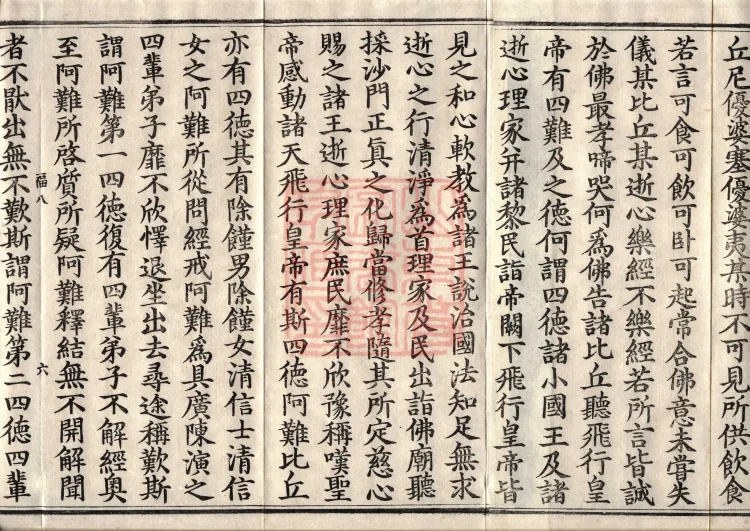 丘尼優婆塞優婆夷某時不可見所供飲食
若言可食可飲可卧可起常合佛意未嘗失
儀某比丘某逝心樂經不樂經若所言皆誠
於佛最孝啼哭何為佛告諸比丘聽飛行皇
帝有四難及之徳何謂四徳諸小國王及諸
逝心理家并諸黎民詣帝闕下飛行皇帝皆
見之和心軟教為諸王説治國法知足無求
逝心之行清淨為首理家及民出詣佛廟聽
採沙門正真之化歸當修孝隨其所定慈心
賜之諸王逝心理家庶民靡不欣豫稱嘆聖
帝感動諸天飛行皇帝有斯四徳阿難比丘
亦有四徳其有除饉男除饉女清信士清信
女之阿難所從問經戒阿難為具廣陳演之
四輩弟子靡不欣懌退坐出去尋途稱歎斯
謂阿難第一四徳復有四輩弟子不解經奧
至阿難所啓質所疑阿難釋結無不開解聞
福八 六
者不猒出無不歎斯謂阿難第二四徳四輩